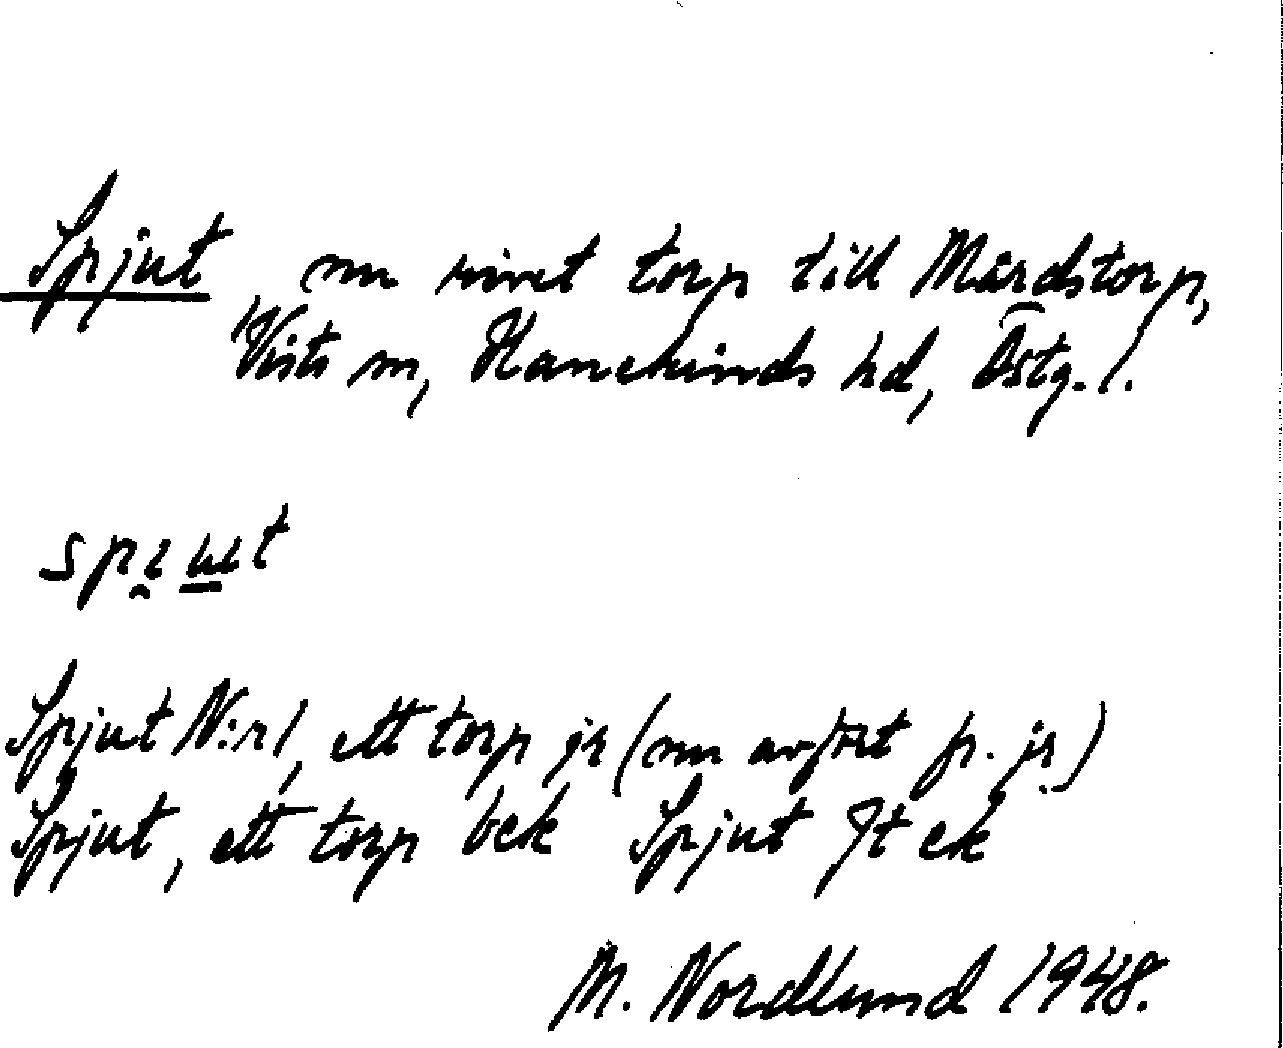 Spjut nu rivet torp till Mårdstorp,
Vists sn, Hanekinds hd, Östg. l.
spi̯ut
Spjut N:r 1, ett torp jr (nu avfört fr. jr)
Spjut, ett torp bek Spjut Jt ek
M. Nordlund 1948.